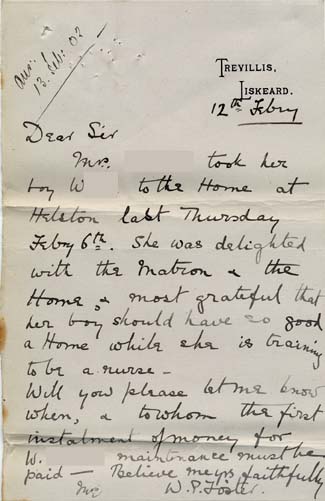 ans:
13. Feb: 02
TREVILLIS,
LISKEARD.
12th Febry
Dear Sir
Mrs. took her
boy W to the Home at
Helston last Thursday
Febry 6th. She was delighted
with the Matron & the
Home, & most grateful that
her boy should have so good
a Home while she is training
to be a nurse —
Will you please let me know
when, & to whom the first
instalment of money for
W. maintnance must be
paid — Believe me yrs faithfully
W. P. Foster